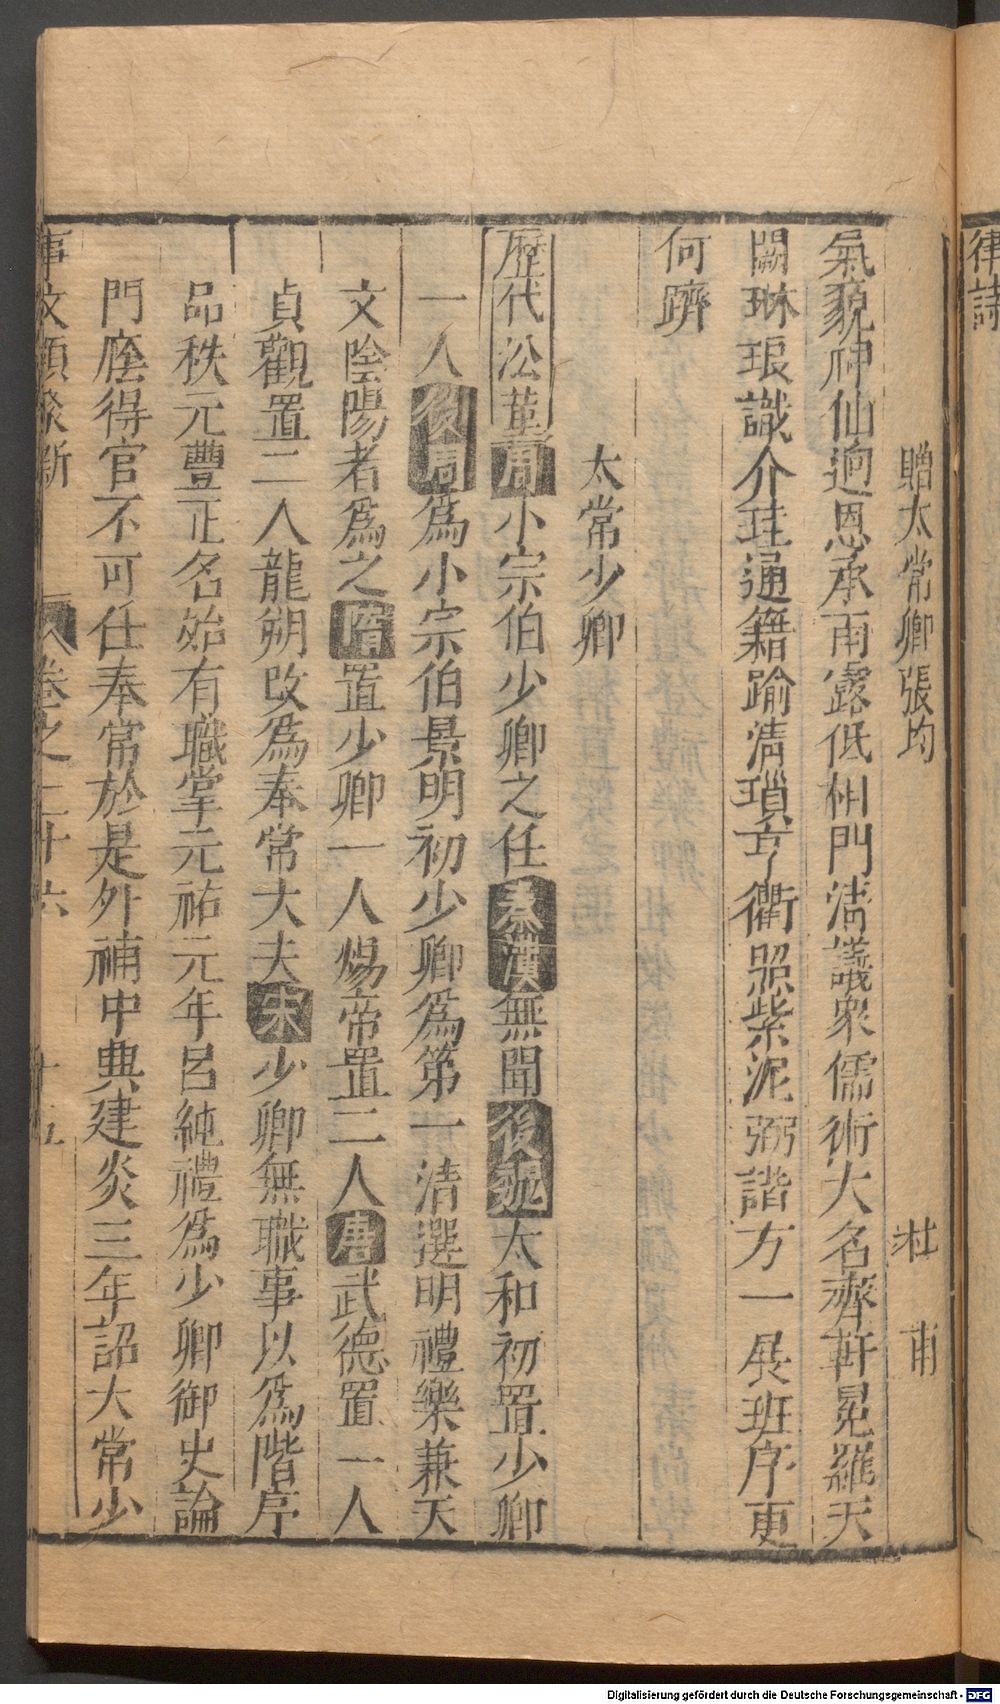 律詩
贈太常卿張均　杜甫
氣貌神仙逈恩承雨露低相門清議衆儒術大名齊軒冕羅天
闕琳琅識介珪通籍踰清瑣亨衢照紫泥弼諧方一展班序更
何躋
太常少卿
歷代㳂革周小宗伯少卿之任秦漢無聞後魏太和初置少卿
一人後周爲小宗伯景明初少卿爲第一清選明禮樂兼天
文陰陽者爲之隋置少卿一人煬帝置二人唐武德置一人
貞觀置二人龍朔改爲奉常大夫宋少卿無職事以爲階序
品秩元豐正名始有職掌元祐元年呂純禮爲少卿御史論
門廕得官不可任奉常於是外補中典建炎三年詔大常少
事文類聚新　卷之二十六　十五
Digitalisierung gefördert durch die Deutsche Forschungsgemeinschaft - DFG